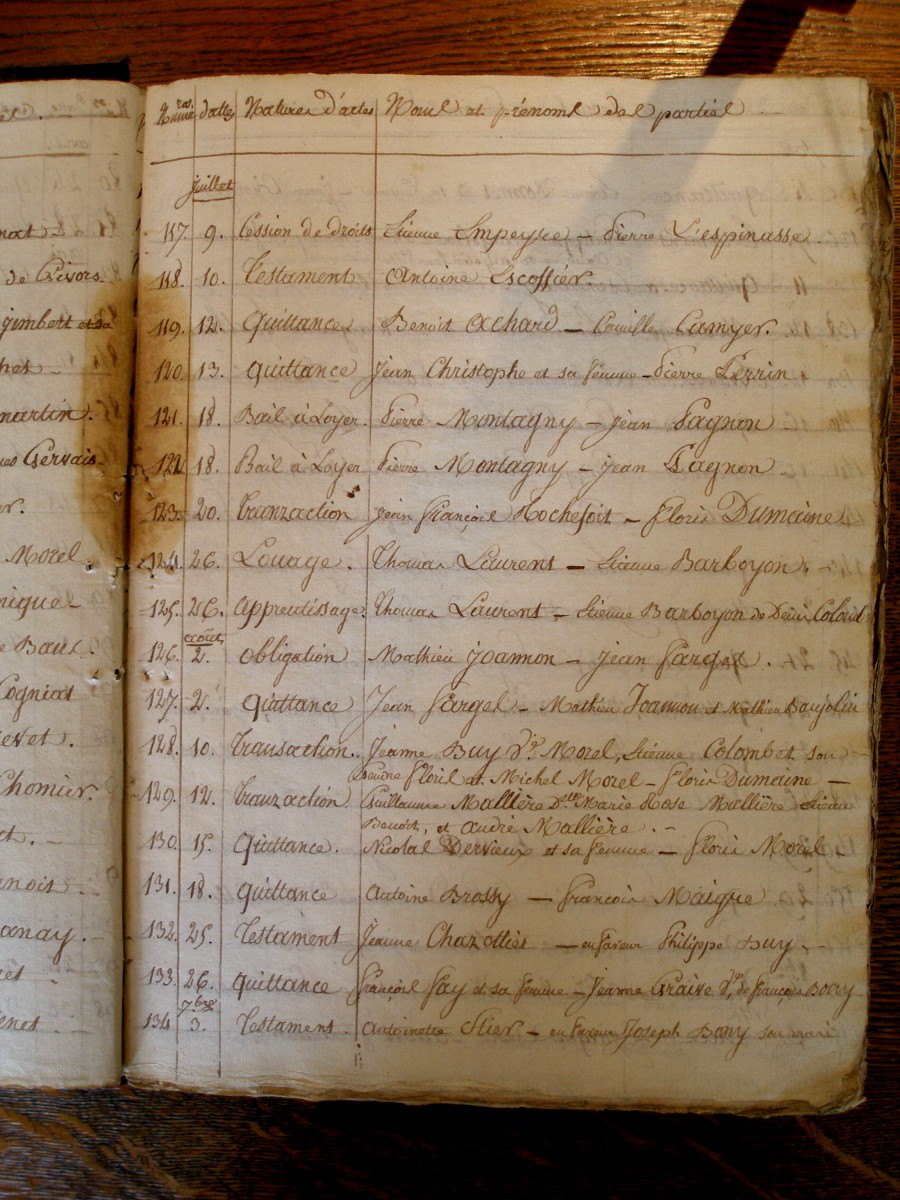 nat
de Givors
gimbert et sa
het
martin.
ues Gervais
er.
Morel
nique
e Baux.
Cogniat
evet.
Chomier.
ct.
anoit
anay.
cet
enet
Num.ros dattes Natures d'actes Noms et prénoms des parties
juillet
117. 9. Cession de droits Etienne Impeyre – Pierre L'espinasse.
118. 10. Testament Antoine Escoffier
119. 12. Quittance Benoit Achard – Camille Camyer.
120. 13. Quittance Jean Christophe et sa femme – Pierre Perrin
121. 18. Bail à Loyer. Pierre Montagny – jean Pagnon
122. 18. Bail à Loyer Pierre Montagny – jean Pagnon.
123. 20. Tranzaction jean françois Rochefort – floris Dumaine
124. 26. Louage. Thomas Laurent – Etienne Barboyon.
125. 26. apprentissage. Thomas Laurent – Etienne Barboyon de Colond
août
126. 2. obligation Mathieu Joannon – jean farget.
127. 2. Quittance Jean farget – Mathieu Joannon et Mathieu Baujolin
128. 10. Transaction. Jeanne Buy v.e Morel, Etienne Colombet son
gendre floris et Michel Morel – floris Dumaine –
129. 12. Tranzaction Guillaume Mallière D.lle Marie Rose Mallière Etienne
Benoit, et andré Mallière. –
130. 15. Quittance. Nicolas Dervieux et sa femme – floris Morel –
131. 18. quittance antoine Brossy – françois Maigre
132. 25. Testament Jeanne Chazottier – en faveur Philippe Buy. –
133. 26. quittance françois fay et sa femme – Jeanne Graive v.e de françois Bony
7bre
134 3. Testament. antoinette Stier – en faveur Joseph Bony son mari